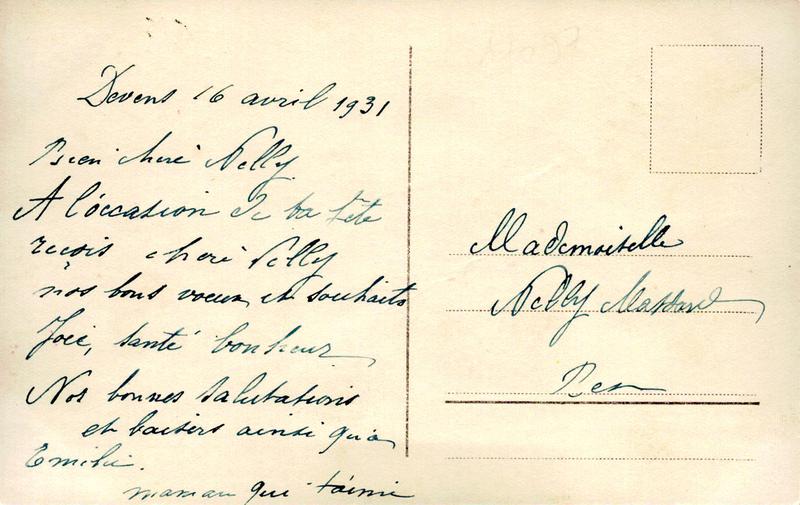 Devens 16 avril 1931
Bien cheré Nelly
A l'occasion de ta fête
reçois cheré Nelly
nos bons voeux et souhaits
Joie, santé bonheur
Nos bonnes salutations
et baisers ainsi qu'a
Emilie.
maman qui t'aime
Mademoiselle
Nelly
Bex